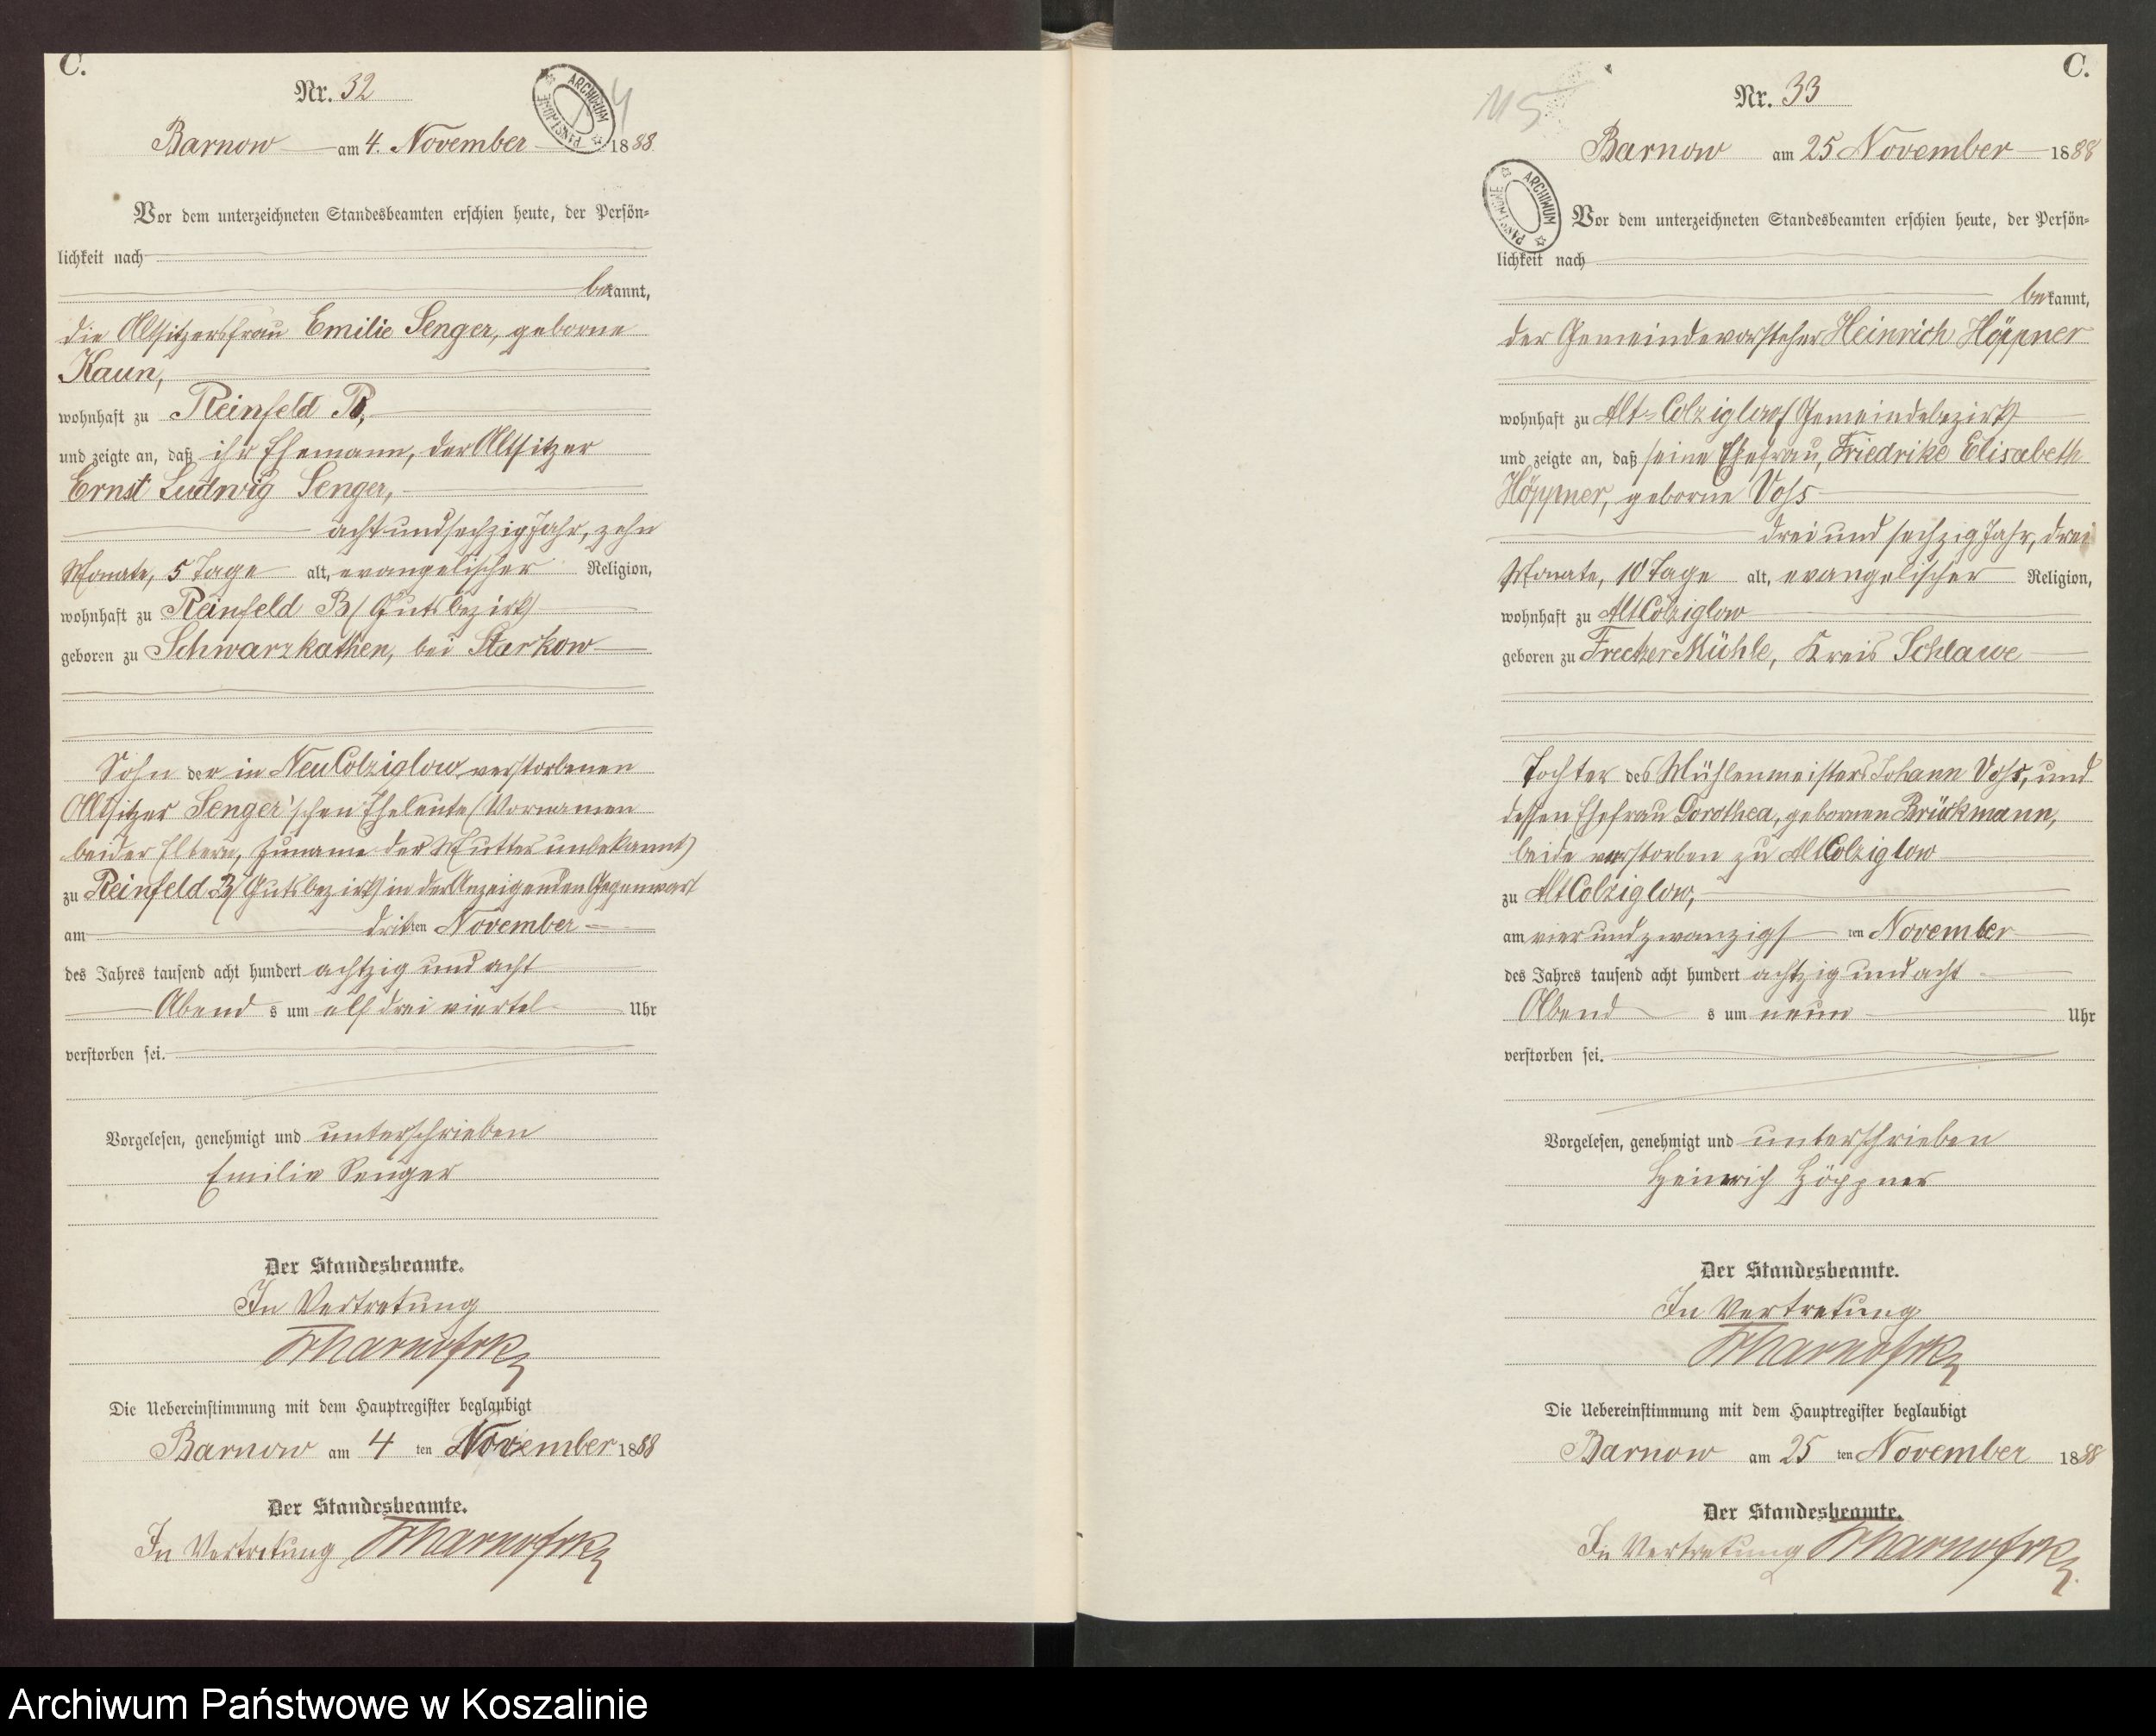 C.
Nr. 32
Barnow am 4. November 1888
Vor dem unterzeichneten Standesbeamten erschien heute, der Persön-
lichkeit nach
bekannt,
die Altsitzersfrau Emilie Senger, geborne
Kaun,
wohnhaft zu Reinfeld B,
und zeigte an, daß ihr Ehemann, der Altsitzer
Ernst Ludwig Senger,
acht und sechzig Jahr, zehn
Monate, 5 Tage alt, evangelischer Religion,
wohnhaft zu Reinfeld B (Gutsbezirk)
geboren zu Schwarzkathen, bei Starkow
Sohn der in Neu Colziglow verstorbenen
Altsitzer Senger'schen Eheleute (Vornamen
beider Eltern, Zuname der Mutter unbekannt)
zu Reinfeld B (Gutsbezirk) in der Anzeigenden Gegenwart
am dritten November
des Jahres tausend acht hundert achtzig und acht
Abend s um elf drei viertel Uhr
verstorben sei.
Vorgelesen, genehmigt und unterschrieben
Emilie Senger
Der Standesbeamte.
In Vertretung
Die Uebereinstimmung mit dem Hauptregister beglaubigt
Barnow am 4 ten November 1888
Der Standesbeamte.
In Vertretung
C.
115
Nr. 33
Barnow am 25 November 1888
ARCHIWUM PAŃSTWOWE
Vor dem unterzeichneten Standesbeamten erschien heute, der Persön-
lichkeit nach
bekannt,
der Gemeindevorsteher Heinrich Höppner
wohnhaft zu Alt-Colziglow (Gemeindebezirk)
und zeigte an, daß seine Ehefrau, Friedrike Elisabeth
Höppner, geborne Voss
drei und sechzig Jahr, drei
Monate, 10 Tage alt, evangelischer Religion,
wohnhaft zu Alt Colziglow
geboren zu Freetzer Mühle, Kreis Schlawe
Tochter des Mühlenmeisters Johann Voss, und
dessen Ehefrau Dorothea, gebornen Brückmann,
beide verstorben zu Alt Colziglow
zu Alt Colziglow,
am vier und zwanzigs ten November
des Jahres tausend acht hundert achtzig und acht
Abend s um neun Uhr
verstorben sei.
Vorgelesen, genehmigt und unterschrieben
Heinrich Höppner
Der Standesbeamte.
In Vertretung
Die Uebereinstimmung mit dem Hauptregister beglaubigt
Barnow am 25 ten November 1888
Der Standesbeamte.
In Vertretung
Archiwum Państwowe w Koszalinie